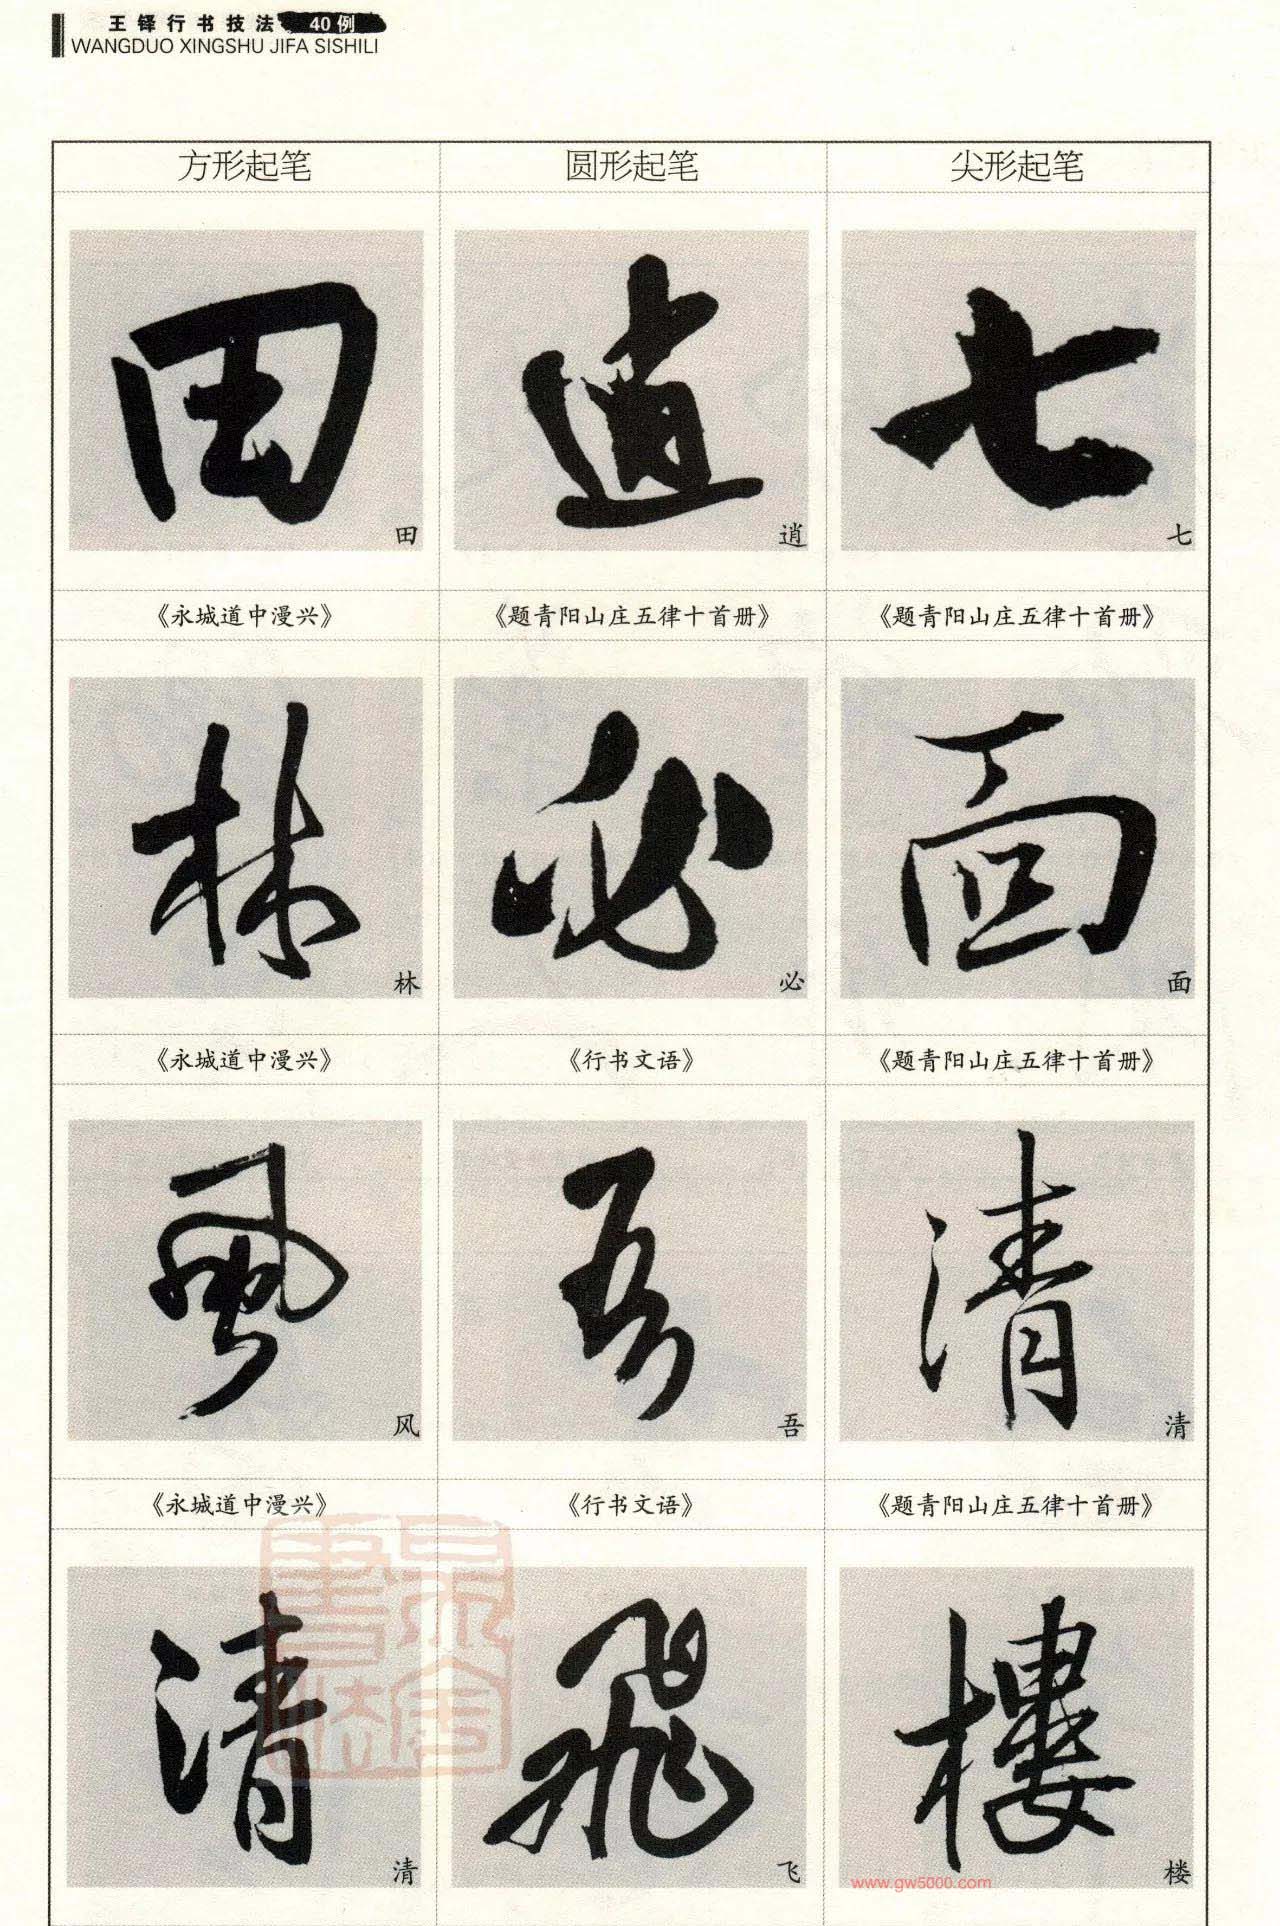 王铎行书技法 40例
WANGDUO XINGSHU JIFA SISHILI
方形起笔 圆形起笔 尖形起笔
田 逍 七
田 逍 七
《永城道中漫兴》 《题青阳山庄五律十首册》 《题青阳山庄五律十首册》
林 必 面
林 必 面
《永城道中漫兴》 《行书文语》 《题青阳山庄五律十首册》
風 吾 清
风 吾 清
《永城道中漫兴》 《行书文语》 《题青阳山庄五律十首册》
清 飛 樓
清 飞 楼
www.gw5000.com